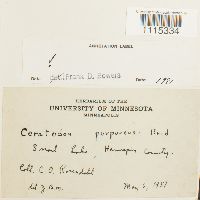 1115334
ANNOTATION LABEL
Det. Frank D. Bowers 1981
HERBARIUM OF THE
UNIVERSITY OF MINNESOTA
MINNEAPOLIS
Ceratodon purpureus
Small Lake, Hennepin County.
Coll. C. O. Rosendahl
May 6, 1937